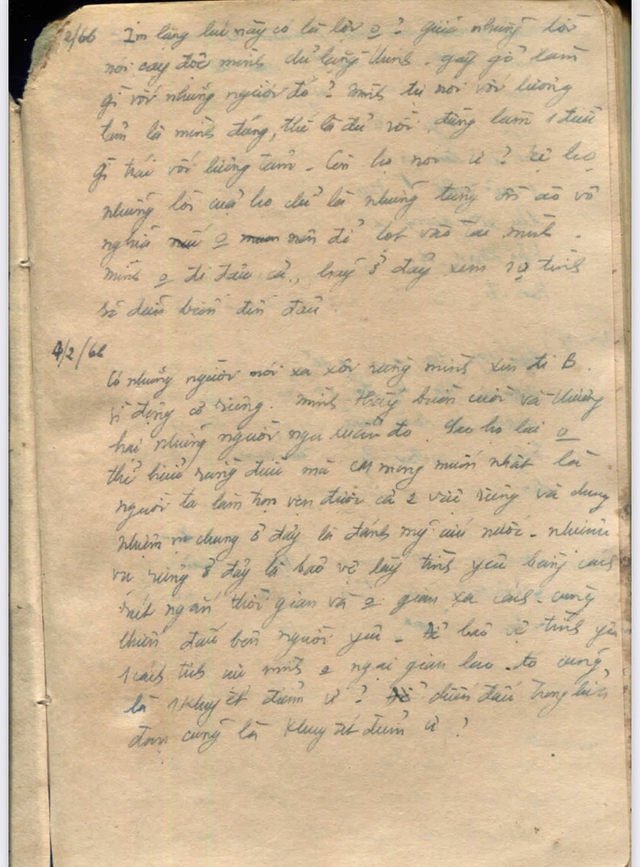 2/66 Im lặng lúc này có là lời o? Giữa những lời
nói cay độc mình cứ lặng thinh. gây gổ làm
gì với những người đó? Mình tự nói với lương
tâm là mình đúng, thế là đủ rồi, đừng làm 1 điều
gì trái với lương tâm. Còn họ nói ư? kệ họ
những lời của họ chỉ là những tiếng ồn ào vô
nghĩa o nên để lọt vào tai mình.
mình o đi đâu cả, hãy ở đây xem sự tình
sẽ diễn biến đến đâu.
4/2/66
Có những người nói xa xôi rằng mình xin đi B.
vì động cơ riêng. Mình thấy buồn cười và thương
hại những người ngu xuẩn đó. Sao họ lại o
thể hiểu rằng điều mà CM mong muốn nhất là
người ta làm trọn vẹn được cả 2 việc riêng và chung
nhiệm vụ chung ở đây là đánh mỹ cứu nước. nhiệm
vụ riêng ở đây là bảo vệ lấy tình yêu bằng cách
rút ngắn thời gian và o gian xa cách. cùng
chiến đấu bên người yêu. Để bảo vệ tình yêu
1 cách tích cực mình o ngại gian lao. đó cũng
là 1 khuyết điểm ư? chiến đấu trong
cũng là khuyết điểm ư?